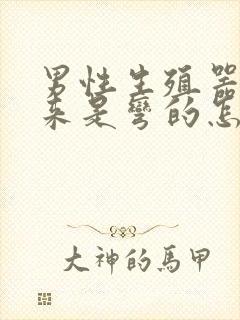 男性生殖器
来是彎的怎
大神的馬甲